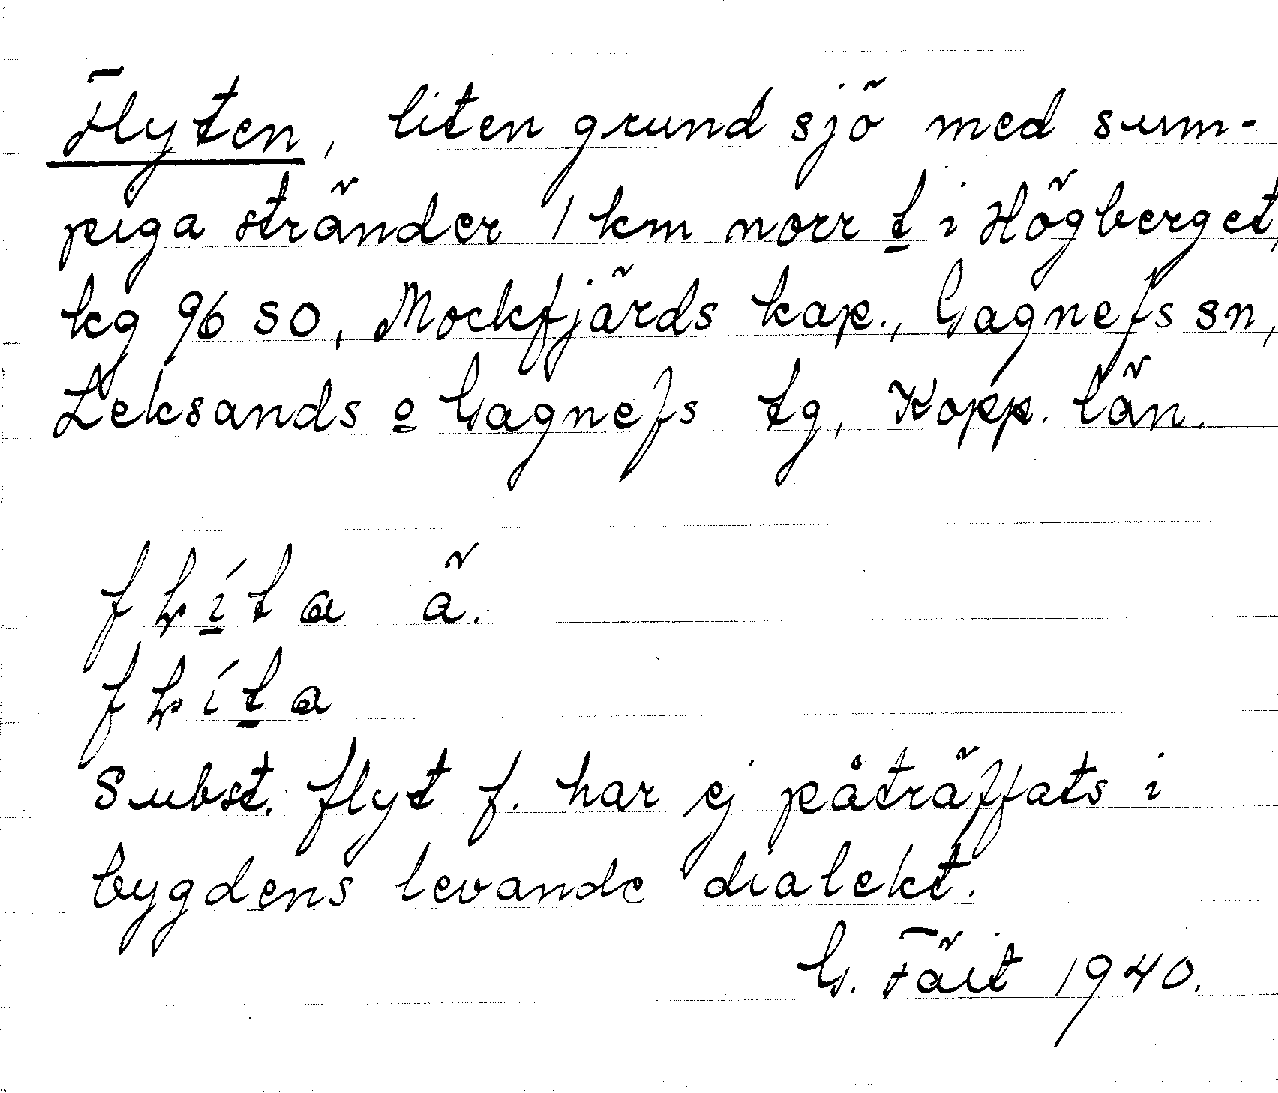 Flyten, liten grund sjö med sum-
piga stränder 1 km norr t i Högberget,
kg 96 SO, Mockfjärds kap., Gagnefs sn,
Leksands o Gagnefs tg, Kopp. län.
ä.
Subst. flyt f. har ej påträffats i
bygdens levande dialekt.
G. Fäit 1940.